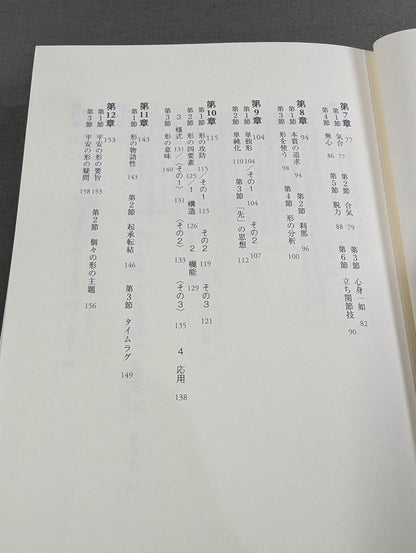 第7章 77
第1節 気合 77 第2節 合気 79 第3節 心身一如 82
第4節 無心 86 第5節 脱力 88 第6節 立ち関節技 90
第8章 94
第1節 本質の追求 94 第2節 刹那 96
第3節 形を使う 98 第4節 形の分析 100
第9章 104
第1節 単独形 104/その1 104 その2 107
第2節 単純化 110 第3節 「先」の思想 112
第10章 115
第1節 形の攻防 115/その1 115 その2 119 その3 121
第2節 形の四要素 125/1 構造 126 2 機能 129
3 様式 131/(その1) 131 (その2) 133 (その3) 135 4 応用 138
第3節 形の意味 140
第11章 143
第1節 形の物語性 143 第2節 起承転結 146 第3節 タイムラグ 149
第12章 153
第1節 平安の形の要旨 153 第2節 個々の形の主題 156
第3節 平安の形の疑問 158